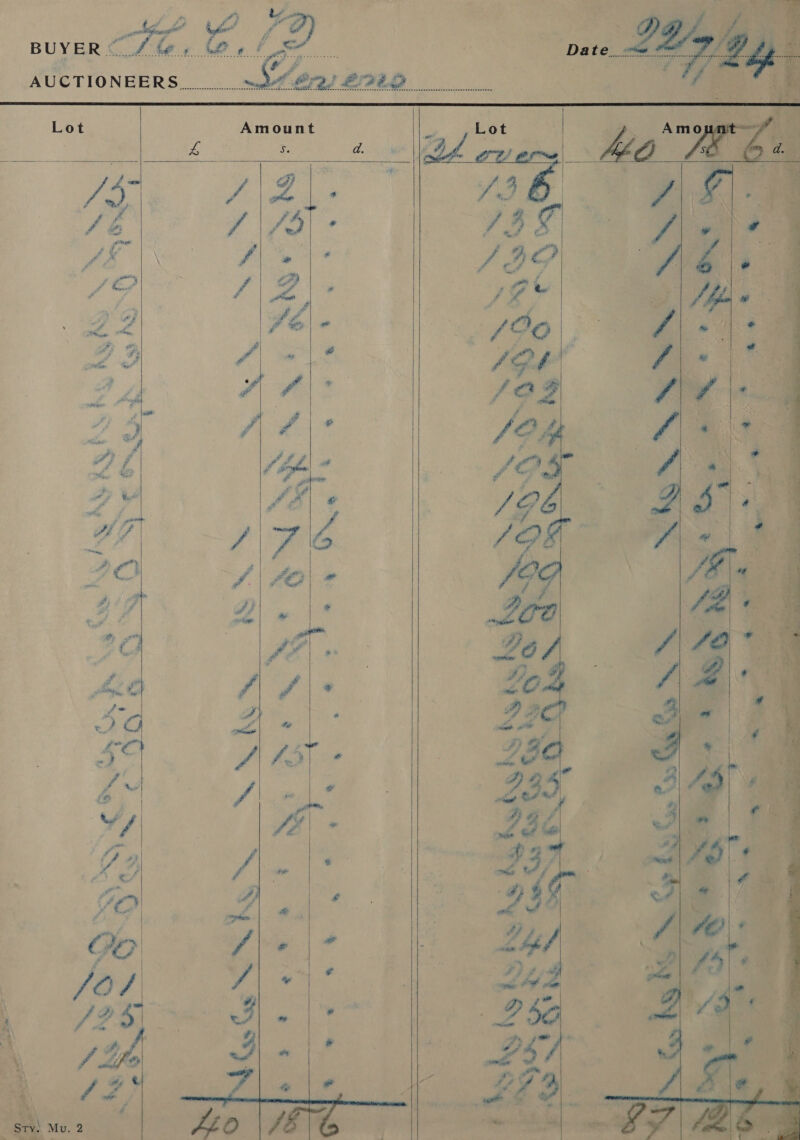 BUYER H. C. D Date 22/7/24
AUCTIONEERS Stevens
Lot Amount Lot Amount
£ s. d. Bt over 40 18 6 d.
15 1 2 . 136 1 8 .
16 1 15 . 138 1 . .
18 1 . . 139 1 6 .
19 1 2 . 14 .
22 16 . 190 1 . .
23 1 . . 191 1 . .
24 1 1 . 192 1 1 .
25 1 1 . 194 1 . .
26 14 . 195 1 . .
18 . 196 2 5 .
1 7 6 198 1 . .
30 1 10 . 199 18 .
37 2 . . 200 12 .
39 18 . 201 1 10 .
40 1 1 . 202 1 2 .
2 . . 3 . .
59 1 15 . 230 3 . .
1 . . 235 3 15 .
18 . 236 3 . .
1 . . 237 15 .
2 . . 238 . .
90 1 . . 241 1 10 .
101 1 . . 242 15 .
125 3 . . 250 2 15 .
126 3 . . 257 3 . .
7 . . 1 8 .
Sty. Mu. 2 40 18 6 87 12 6